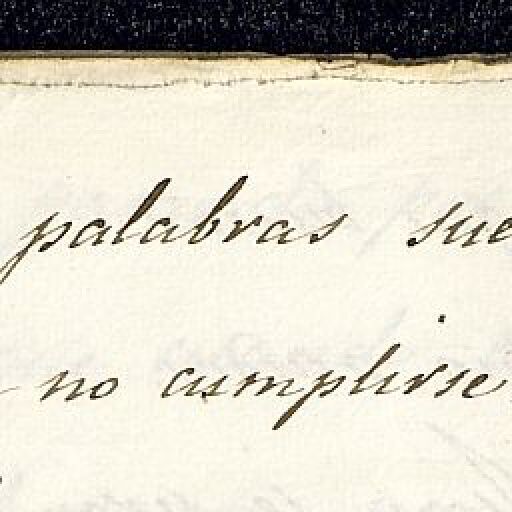 palabras sue
no cumplirse